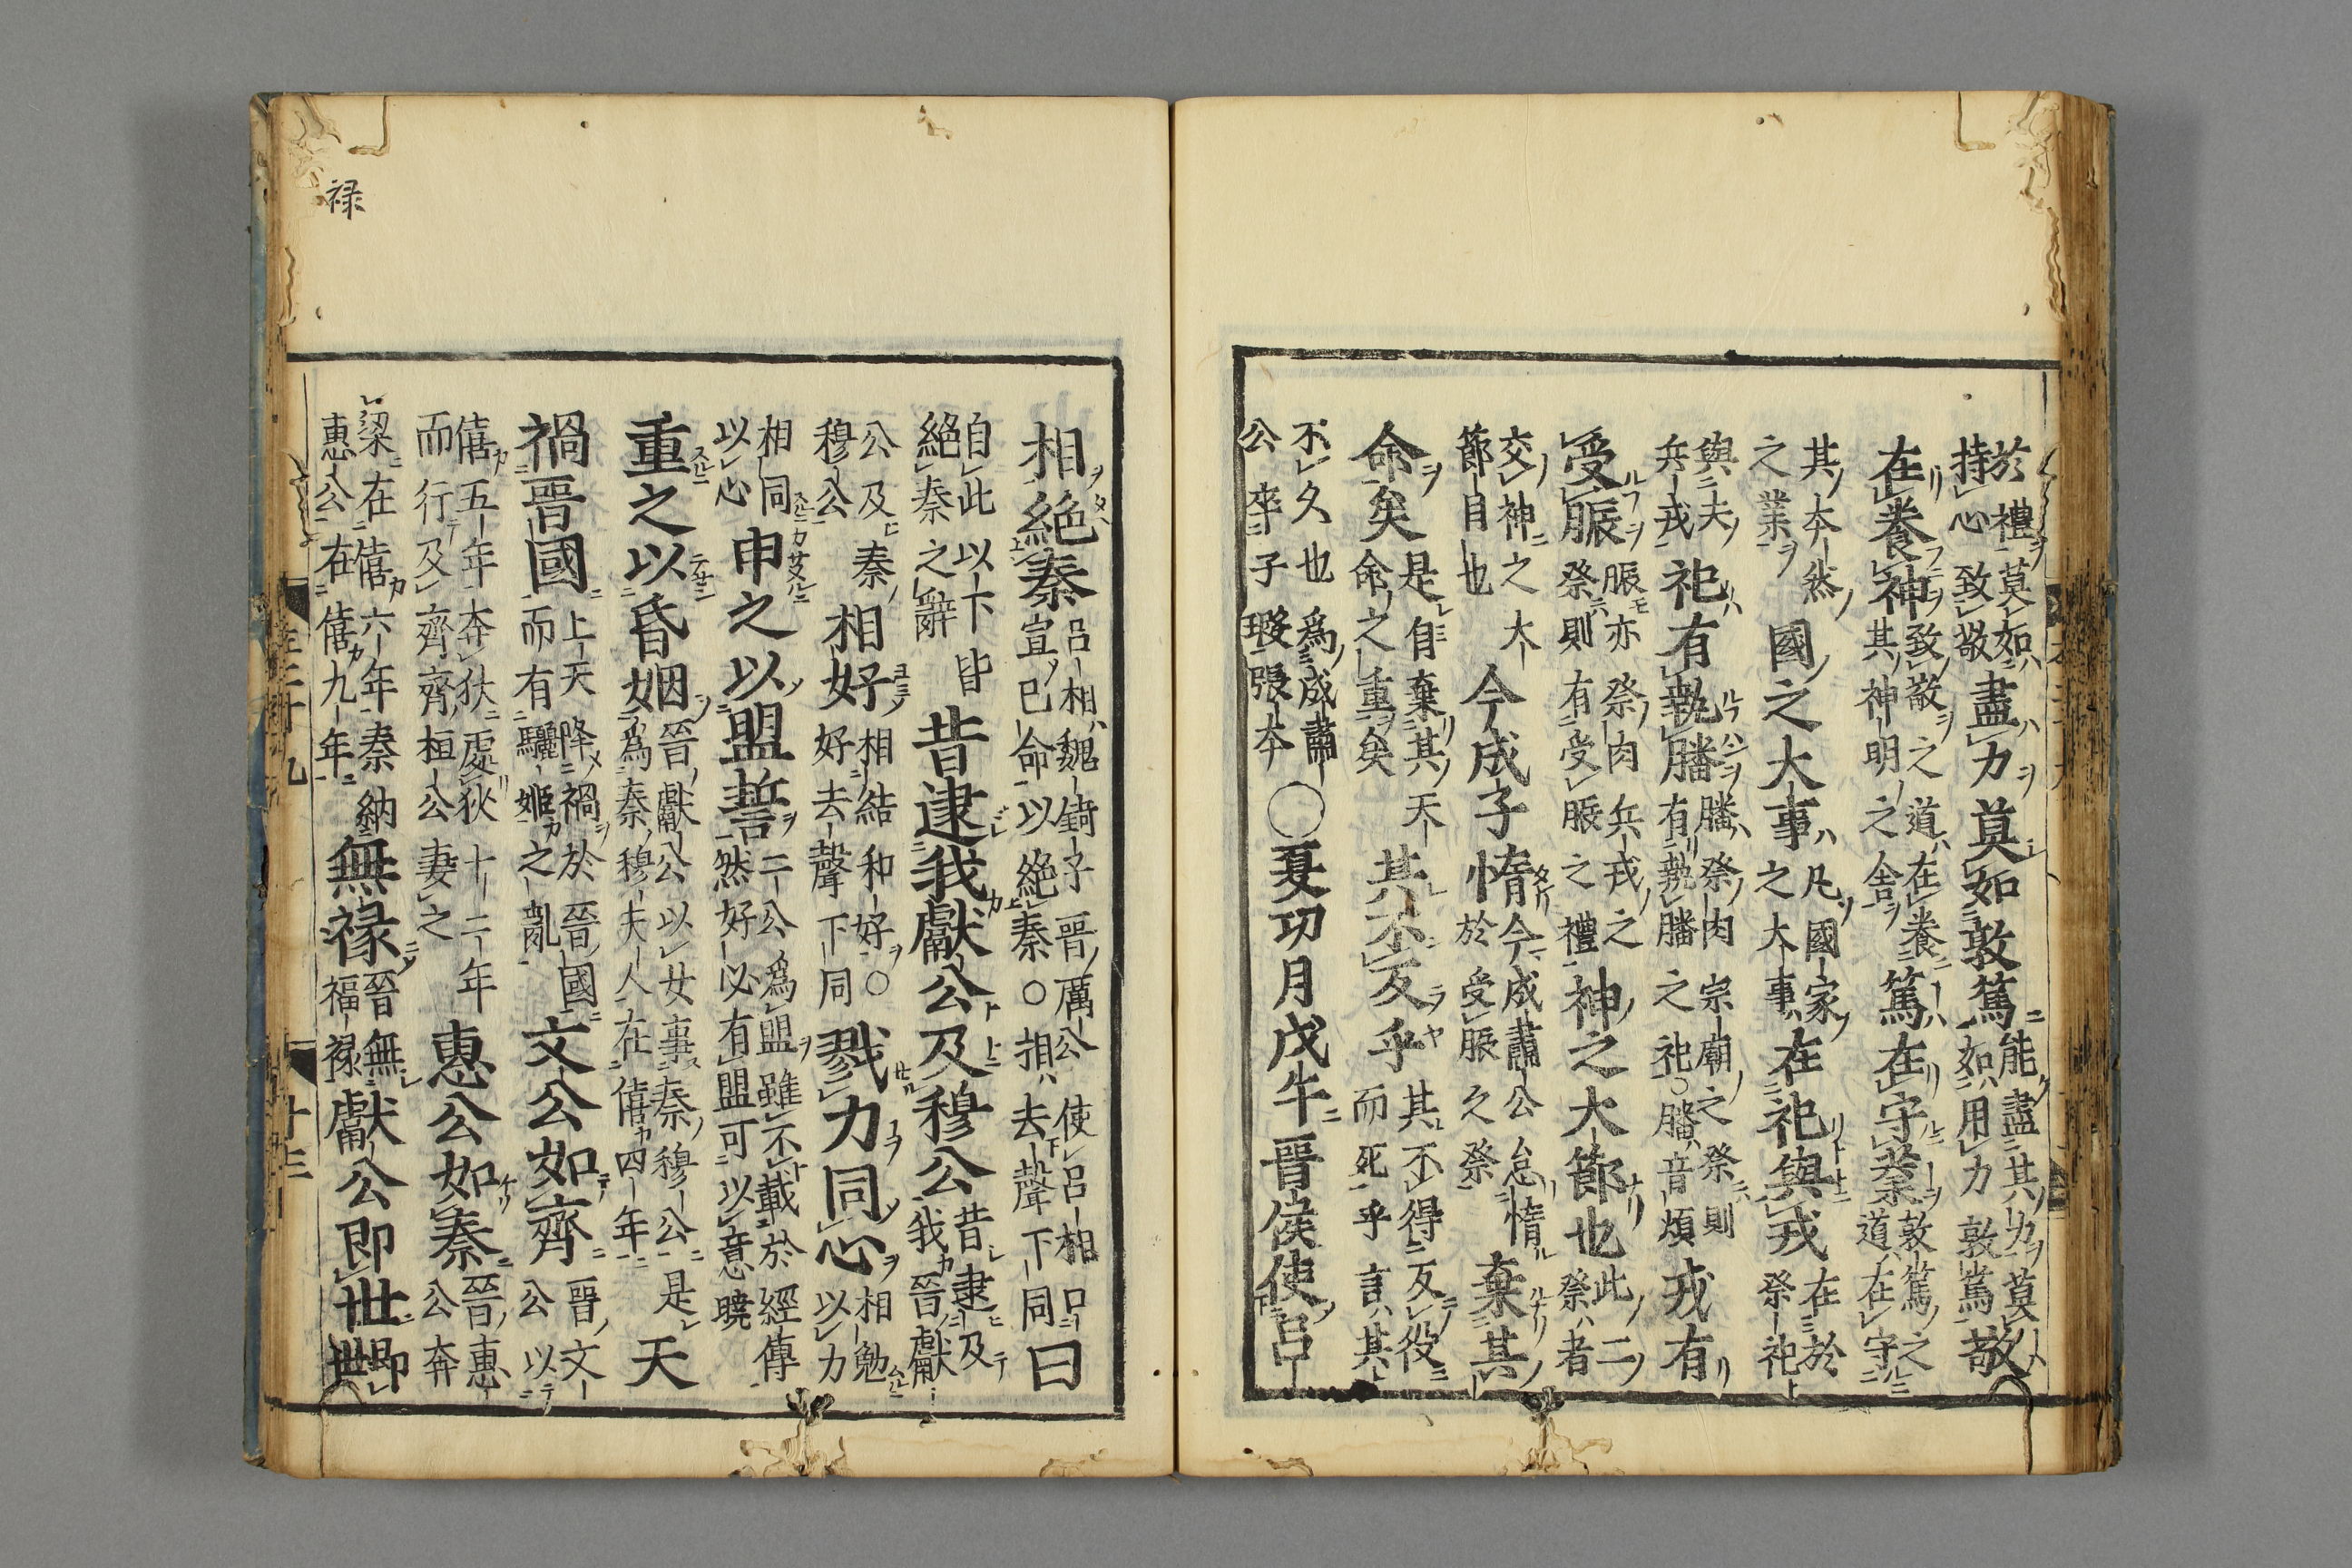 於禮莫如持心致敬盡力莫如敦篤能盡其力莫如用力敦篤敬
在養神致敬之道在養其神明之舍篤在守業敦篤之道在守
其本然之業國之大事凡國家之大事在祀與戎在於祭祀
與夫兵戎祀有執膰膰祭肉宗廟之祭則有執膰之祀○膰音煩戎有
受脤脤亦祭肉兵戎之祭則有受脤之禮神之大節也此二祭者
交神之大節目也今成子惰今成肅公怠惰於受脤之祭棄其
命矣是自棄其天命之重矣其不反乎其不得反役而死乎言其
不久也為成肅公卒于瑕張本○夏四月戊午晉侯使呂
相絕秦呂相魏錡子晉厲公使呂相口宣己命以絕秦○相去聲下同曰
自此以下皆絕秦之辭昔逮我獻公及穆公昔逮及我晉獻
公及秦穆公相好相結和好○好去聲下同戮力同心相勉以力
相同以心申之以盟誓二公為盟雖不載於經傳然好必有盟可以意曉
重之以昏姻晉獻公以女事秦穆公是為秦穆夫人在僖四年天
禍晉國上天降禍於晉國而有驪姬之亂文公如齊晉文公以
僖五年奔狄處狄十二年而行及齊齊桓公妻之惠公如秦晉惠公奔
梁在僖六年秦納惠公在僖九年無祿晉無福祿獻公即世即世
禄
左二十九
十三